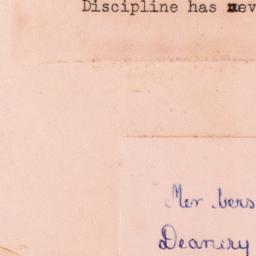 Discipline has nev
Members
Deanery